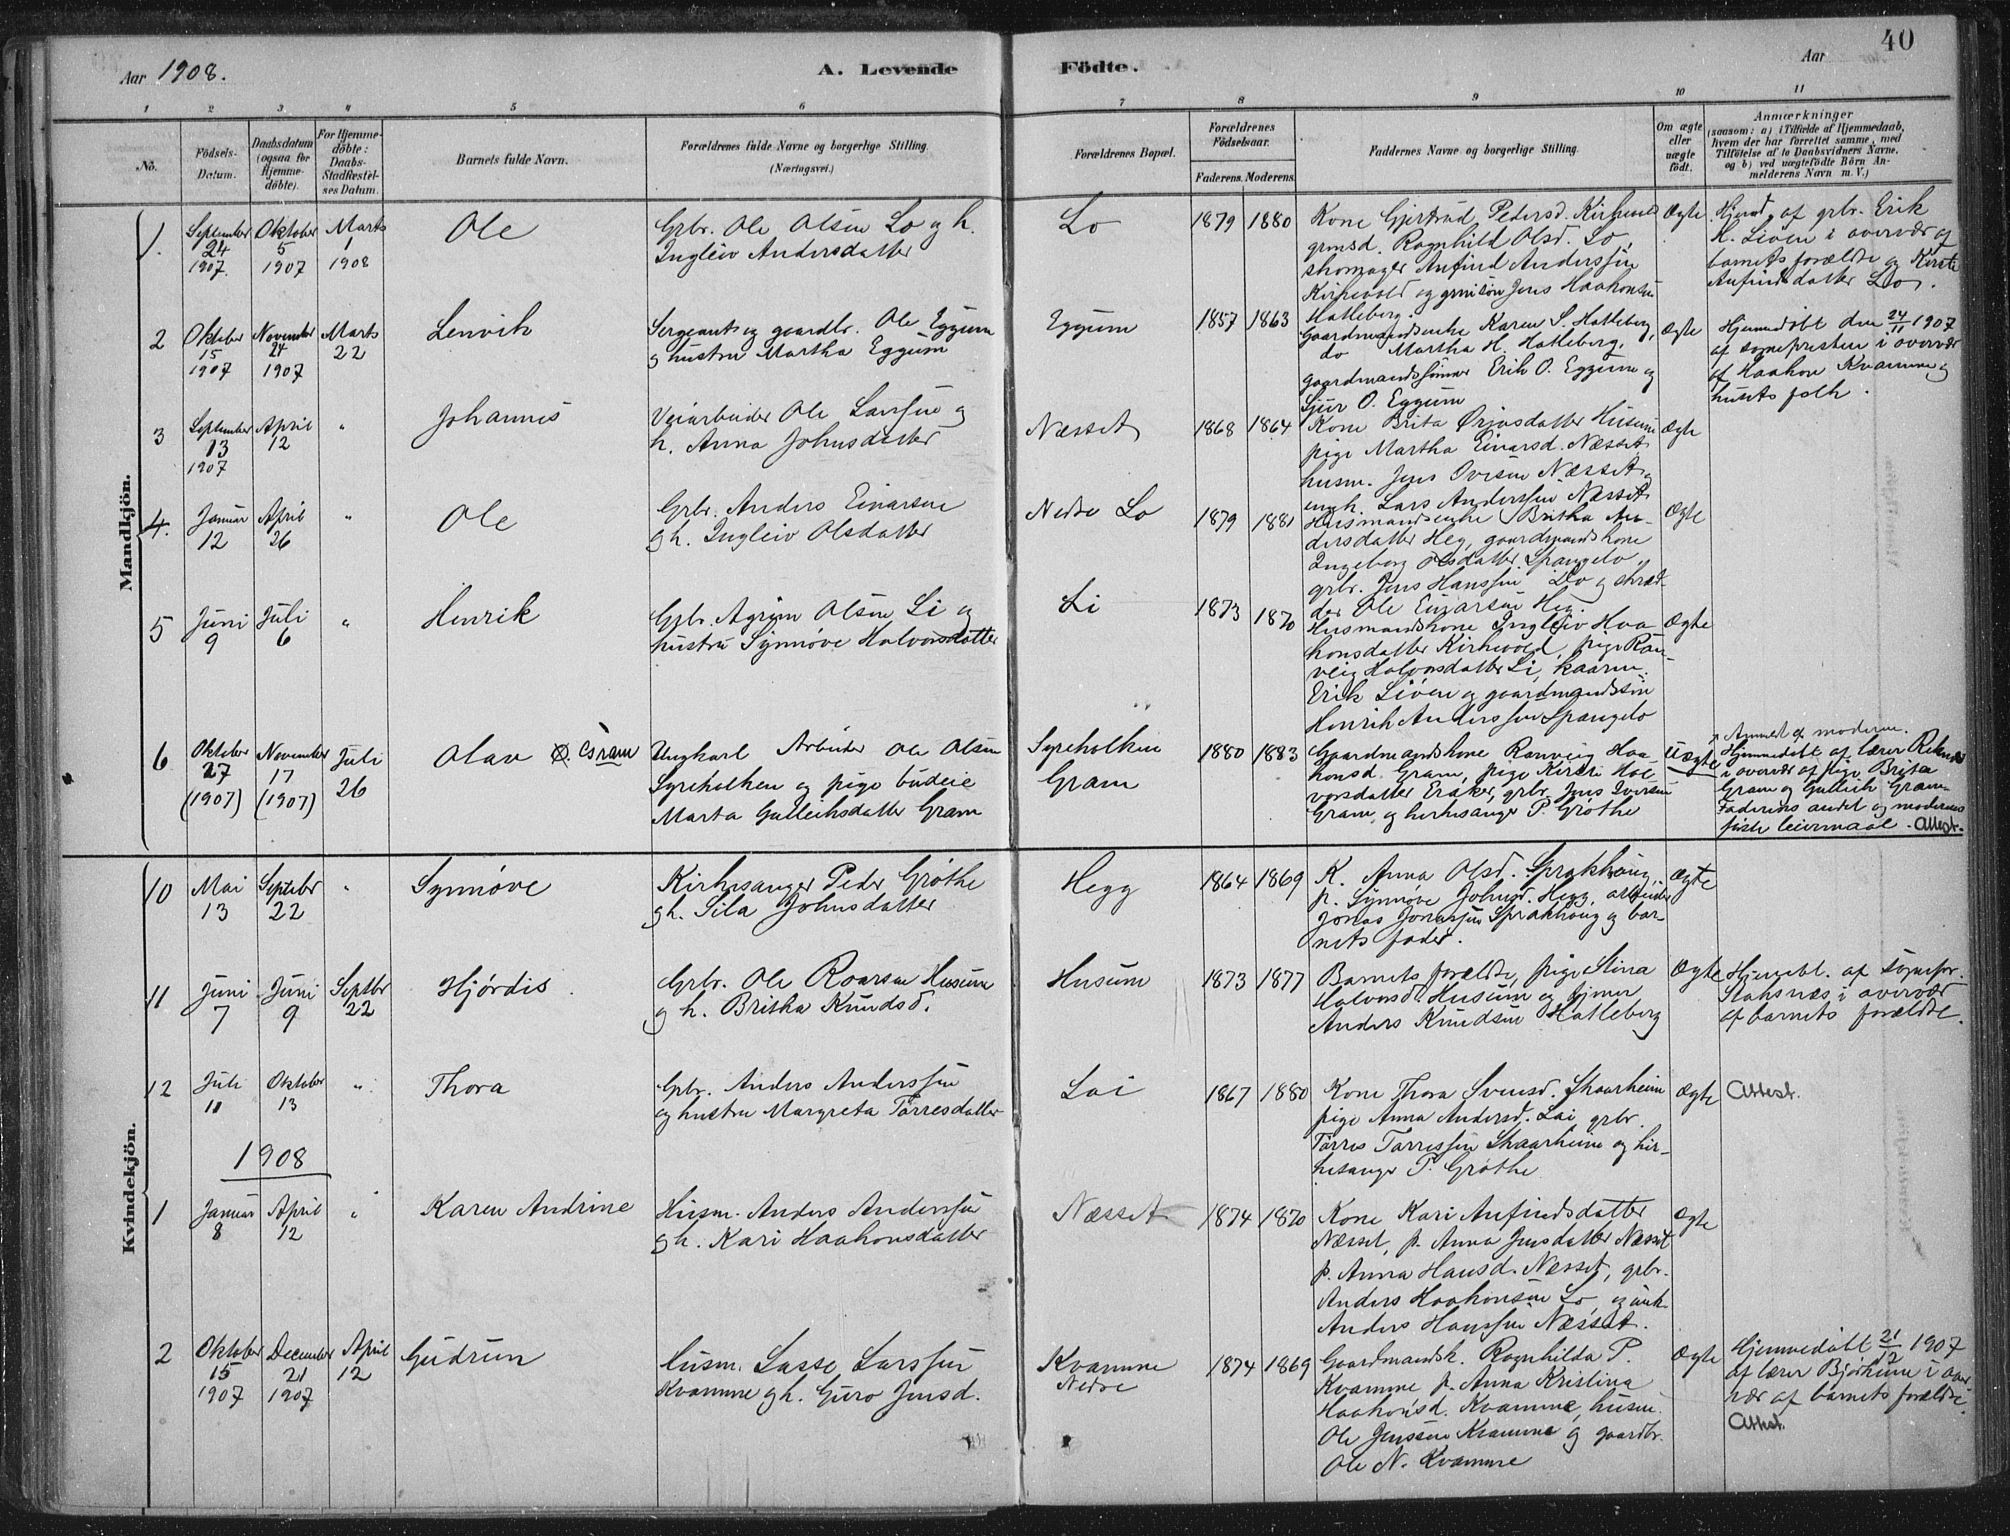 40
Aar 1908.
A. Levende Födte.
Aar
1 2 3 4 5 6 7 8 9 10 11
No.
Födsels-
Datum.
Daabsdatum
(ogsaa for
Hjemme-
döbte).
For Hjemme-
döbte:
Daabs-
Stadfæstel-
ses Datum.
Barnets fulde Navn.
Forældrenes fulde Navne og borgerlige Stilling.
(Næringsvei.)
Forældrenes Bopæl.
Forældrenes
Födselsaar.
Faderens. Moderens.
Faddernes Navne og borgerlige Stilling.
Om ægte
eller
uægte
födt.
Anmærkninger
(saasom: a) i Tilfælde af Hjemmedaab,
hvem der har forrettet samme, med
Tilföielse af to Daabsvidners Navne.
og b) ved uægtefödte Börn An-
melderens Navn m. V.)
Mandkjön.
1. September 24 1907. Oktober 5 1907 Marts 1 1908
Ole
Grbr. Ole Olsen Lo og h.
Ingleiv Andersdatter
Lo
1879 1880
Kone Gjertrud Pedersd. Kirkevold
grmsd. Ragnhild Olsd. Lo,
skomager Anfind Anderssen
Kirkevold og grmsön Jens Haakonsen
Hatleberg.
Ægte
Hjemd. af grbr. Erik
H. Liöen i overvær af
barnets forældre og Kirsti
Anfindsdatter Lo.
2 Oktober 15 1907 November 24 1907 Marts 22
Lenvik
Sergeant og gaardbr. Ole Eggum
og hustru Martha Eggum
Eggum
1857 1863
Gaardmandsenke Karen S. Hatleberg,
do Martha H. Hatleberg,
gaardmandssönner Erik O. Eggum og
Sjur O. Eggum
Ægte
Hjemmedöbt den 24/11 1907
af sognepresten i overvær
af Haakon Kvamme og
husets folk.
3 September 13 1907 April 12 "
Johannes
Veiarbeider Ole Larssen og
h. Anna Johnsdatter
Næsset
1868 1864
Kone Brita Örjasdatter Husum
pige Martha Einarsd. Næsset
husm. Jens Iversen Næsset
ungk. Lars Anderssen Næsset
Ægte
4. Januar 12 April 26 "
Ole
Grbr. Anders Einarsen
og h. Ingleiv Olsdatter
Nedre Lo
1879 1881
Husmandsenke Britha An-
dersdatter Heg, gaardmandskone
Ingeborg Olsdatter Spangelo,
grbr. Jens Hanssen Lo og skræd-
der Ole Einarsen Heg.
Ægte
5 Juni 9 Juli 6 "
Henrik
Grbr. Agrim Olsen Li og
hustru Synnøve Halvorsdatter
Li
1873 1870
Husmandskone Ingleiv Haa-
konsdatter Kirkevold, pige Ran-
veig Halvorsdatter Li, kaarm.
Erik Liöen og gaardmandssön
Henrik Anderssen Spangelo
Ægte
6 Oktober 27 (1907) November 17 (1907) Juli 26
Olav
Ungkarl Arbeider Ole Olsen
Syreholken og pige budeie
Marta Gulleiksdatter Gram
Syreholken
Gram
1880 1883
Gaardmandskone Ranveig Haa-
konsd. Gram, pige Kirsti Hal-
vorsdatter Eraker, grbr. Jens Iversen
Gram og kirkesanger P. Gröthe
Uægte
Anmeldt af moderen.
Hjemmedöbt af lærer
i overvær af pige Brita
Gram og Gulleik Gram.
Faderens andet og moderens
förste leiermaal. Attest.
Kvindekjön.
10 Mai 13 September 22 "
Synnøve
Kirkesanger Peder Gröthe
og h. Sila Johnsdatter
Hegg
1864 1869
K. Anna Olsd. Sprakhaug,
p. Synnøve Johnsd. Hegg, arbeider
Jonas Jonassen Sprakhaug og bar-
nets fader.
Ægte
11 Juni 7 Juni 9 Septbr 22
Hjördis
Grbr. Ole Roarsen Husum
og h. Britha Knudsd.
Husum
1873 1877
Barnets forældre, pige Stina
Halvorsd. Husum og
Anders Knudsen Hatleberg
Ægte
Hjemmebt. af sognepr.
Stahsnæs i overvær
af barnets forældre.
12 Juli 11 Oktober 13 "
Thora
Grbr. Anders Anderssen
og hustru Margreta Tarresdatter
Lai
1867 1880
Kone Thora Svensd. Skaarheim
pige Anna Andersd. Lai, grbr.
Tarres Tarressen Skaarheim og kir-
kesanger P. Gröthe
Ægte
Attest.
1908
1 Januar 8 April 12 "
Karen Andrine
Husm. Anders Anderssen
og h. Kari Haakonsdatter
Næsset
1874 1870
Kone Kari Anfindsdatter
Næsset, p. Anna Jensdatter Næsset
p. Anna Hansd. Næsset, grbr.
Anders Haakonsen Lo og unk.
Anders Hanssen Næsset.
Ægte
2 Oktober 15 1907 December 21 1907 April 12
Gudrun
Husm. Lasse Larssen
Kvamme og h. Guro Jensd.
Kvamme
Nedre
1874 1869
Gaardmandsk. Ragnhilda P.
Kvamme p. Anna Kristina
Haakonsd. Kvamme, husm.
Ole Jenssen Kvamme og gaardbr.
Ole N. Kvamme
Ægte
Hjemmedöbt 21/12 1907
af lærer Bjørkum i over-
vær af barnets forældre.
Attest.